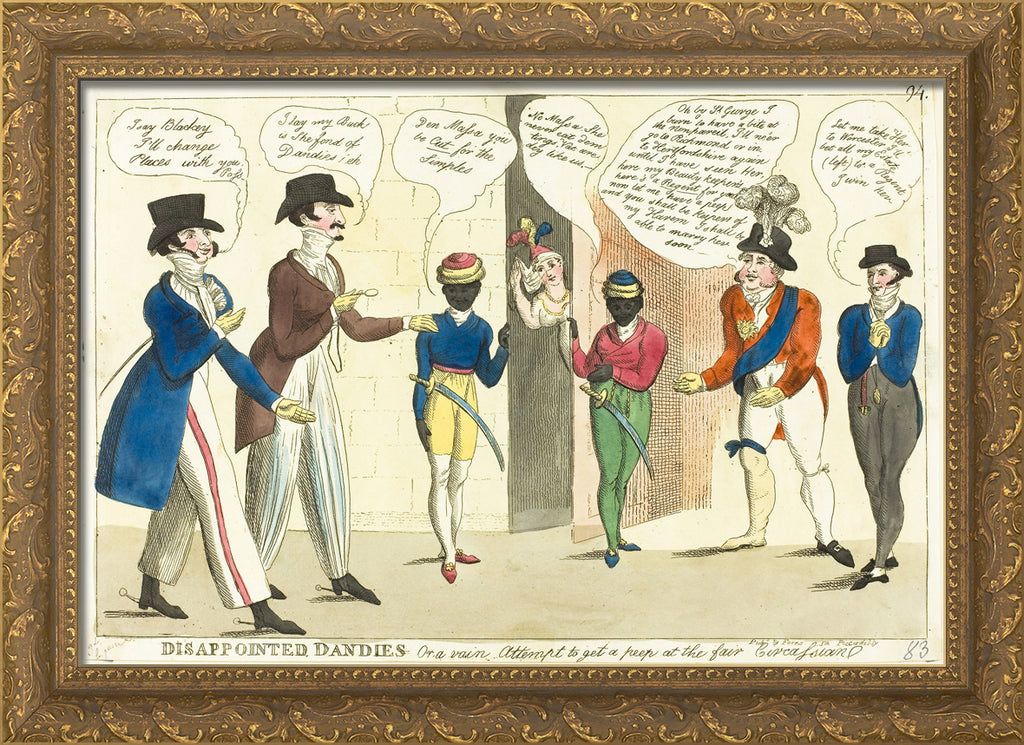 94.
I say Blackey
I'll change
Places with you
Pos.
I say my Buck
is She fond of
Dandies? eh
Den Massa you
to Cut for the
Simples
No Massa She
never eat Dem
tings. Vae are
ony like us.
Oh by St George I
burn to have a bite at
the nonpareil. I'll never
go to Richmond or in
to Hertfordshire again
until I have seen Her.
here my Beauty keepers
here is a Regent for you
now let me have a peep
and you shall be keepers of
my Harem I shall be
able to marry her
soon.
Let me take Her
to Worcester I'll
bet all my Estate
(left) to a Round
I win Her
DISAPPOINTED DANDIES Or a vain Attempt to get a peep at the fair Circassian
Pubd by Fores Piccadilly
83